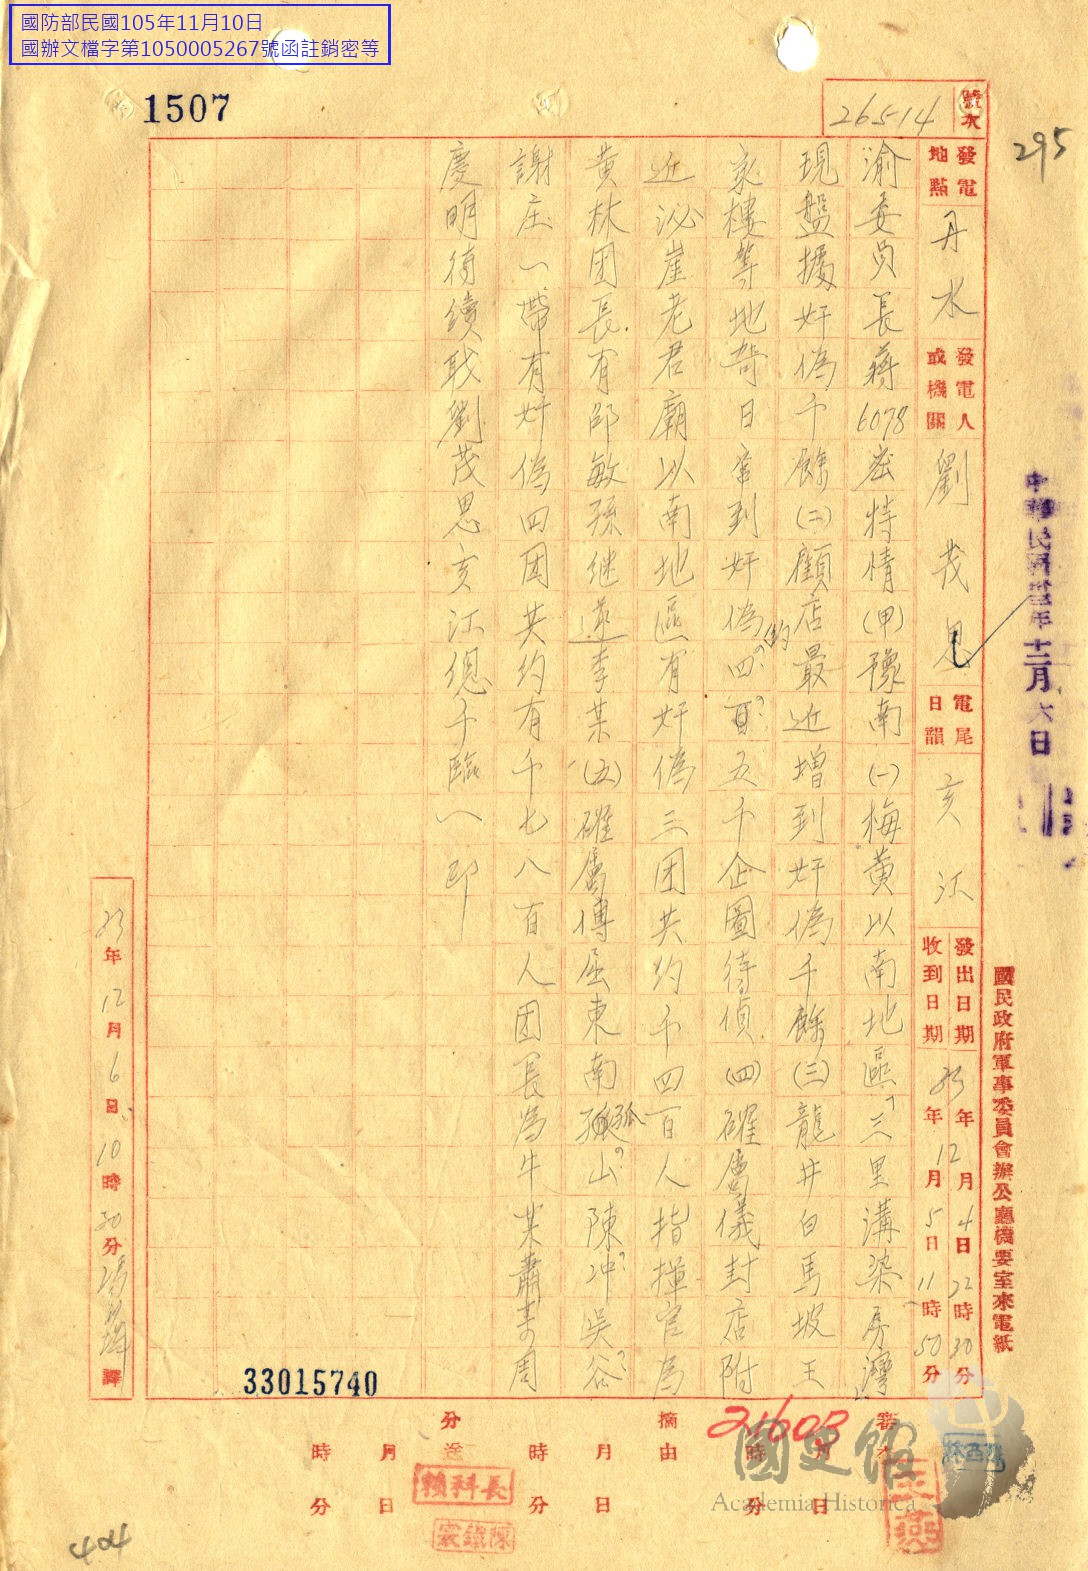 國防部民國105年11月10日
國辦文檔字第1050005267號函註銷密等
1507
295
號次
26514
國民政府軍事委員會辦公廳機要室來電紙
中華民國卅三年十二月六日
發電地點
丹水
發電人或機關
劉茂恩
電尾日韻
亥江
發出日期 33年12月4日22時30分
收到日期 33年12月5日11時50分
渝委員長蔣6078密特情(甲)豫南(一)梅黃以南地區三里溝染房灣
現盤據奸偽千餘(二)顧店最近增到奸偽千餘(三)龍井白馬坡王
家樓等地著日竄到奸偽約四?百?五千企圖待偵(四)確山屬儀封店附
近泌崖老君廟以南地區有奸偽三团共約千四百人指揮官為
黃林团長有邵敏孫继蓮李某(五)確屬傅屈東南孤山?陳冲?吳谷?
謝庄一帶有奸偽四团共約有千七八百人团長為牛某蕭寿周
慶明待續職劉茂恩亥江總千臨(一)印
33年12月6日10時30分
譯
33015740
審核 月 日 時 分
摘由 月 日 時 分
分送 月 日 時 分
21603
賴科長
陳鐵寰
林西屏
國史館
Academia Historica
404